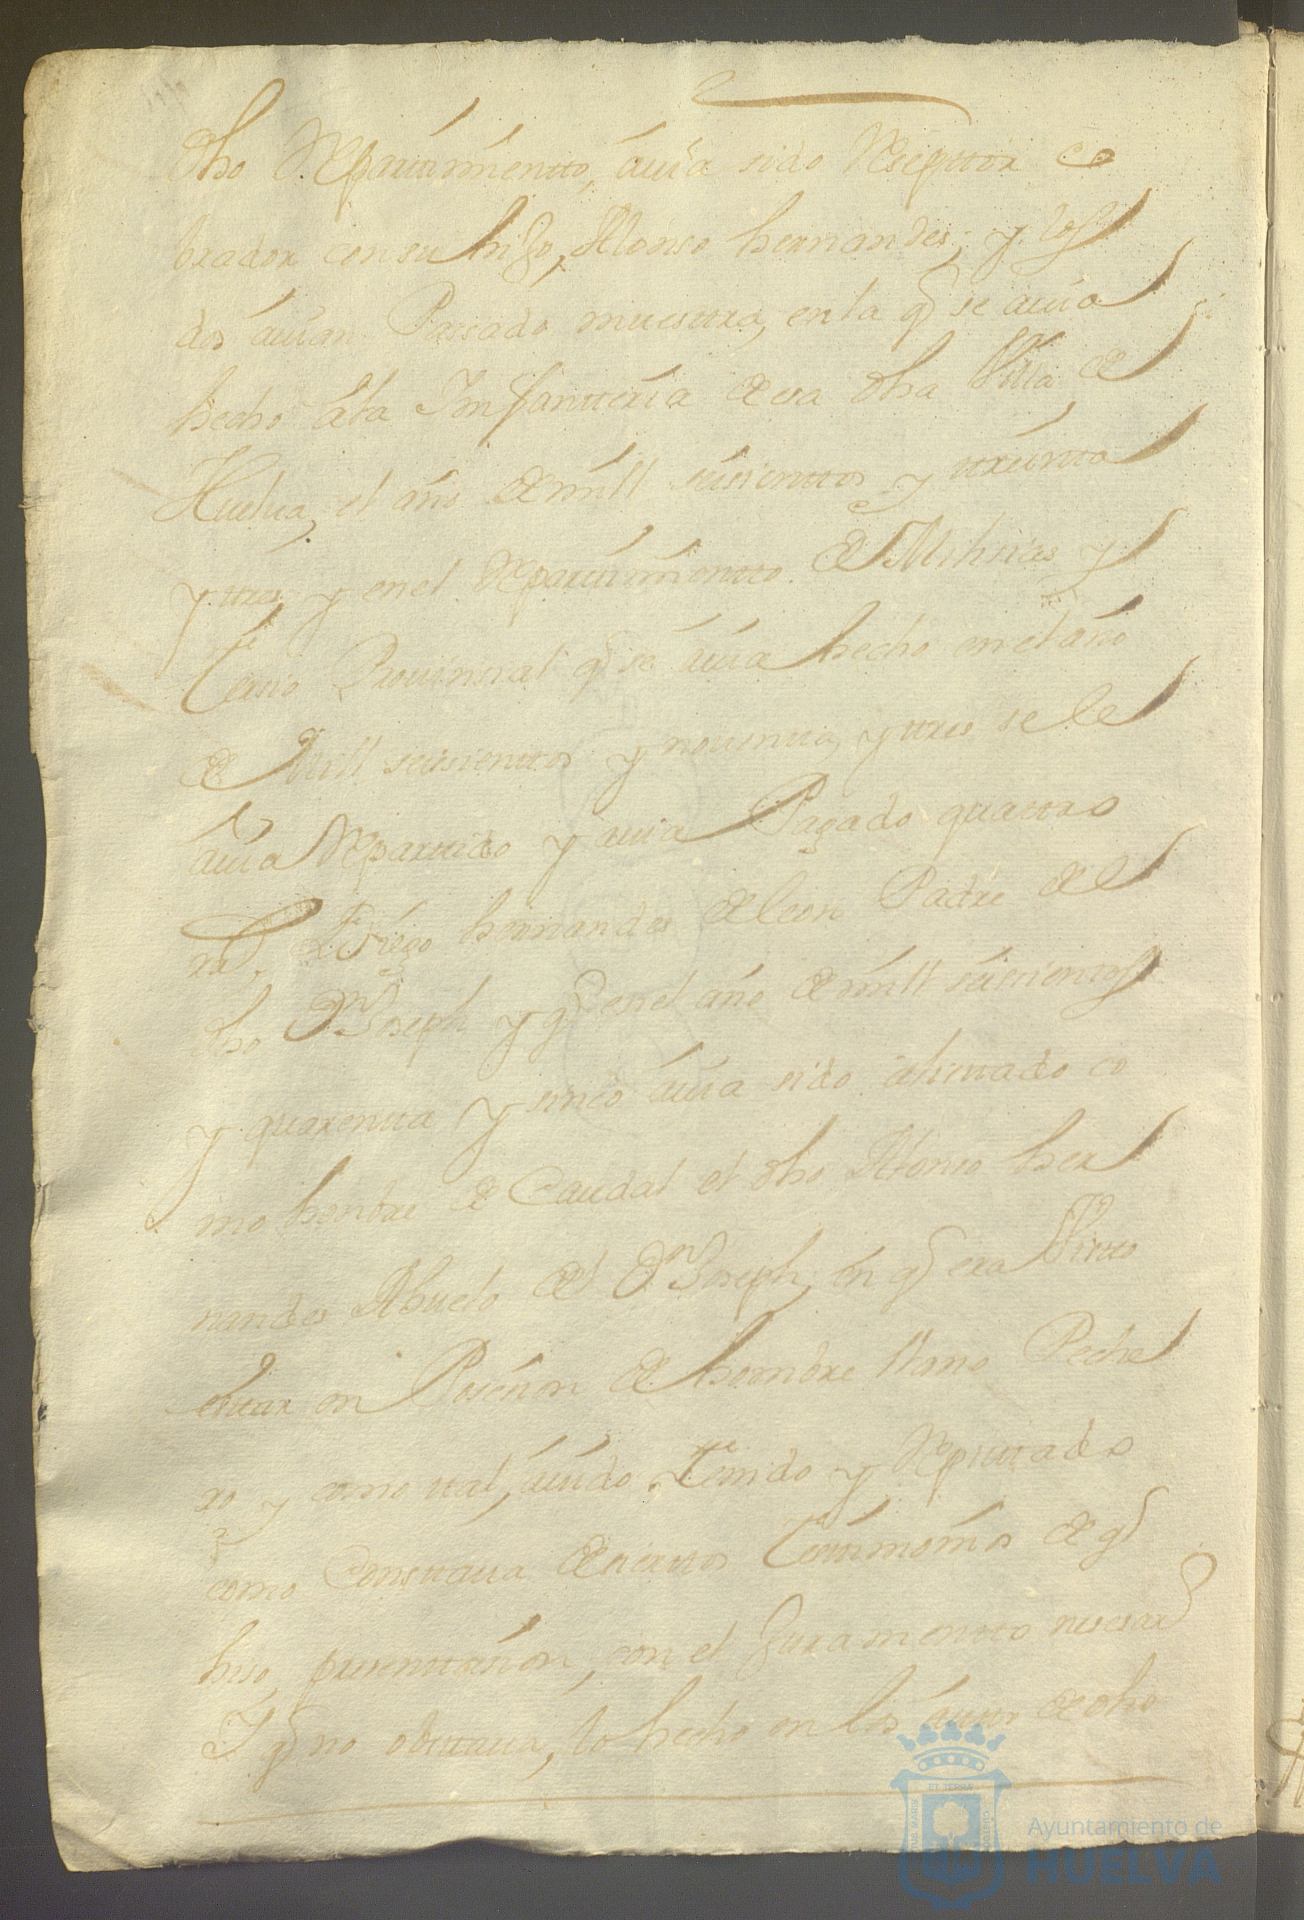 dho Repartimientto, auia sido Reseptor co
brador con su hijo, Alonso hernandes, y tos
dos auian Passado muestra, en la q̃ se auia
hecho a la Infanttería de esa dha Villa, de
Huelua, el año de mill seisienttos y ttreintta
y ttres y en el Repartimientto de Milisias y
Tersio Prouinsial q̃ se auia hecho en el año
de Mill seisienttos y nouentta, y ttres se le
auia Reparttido y auia Pagado quattro
rs, Diego hernandes de leon Padre de el
dho Dn Joseph y q̃ en el año de mill seisienttos
y quarentta y sinco auia sido alistado co
mo hombre de Caudal el dho Alonso her
nandes Abuelo del Dn Joseph, en q̃ era Visto
esttar en Posesion de hombre llano Peche
ro y como ttal, auido, Tenido y Reputtado
como Consttaua de sierttos Testimonios de q̃
hiso, presenttasion, con el Juramentto nesesarº
Y q̃ no obsttaua, lo hecho en los auttos de dho
Ayuntamiento de
HUELVA